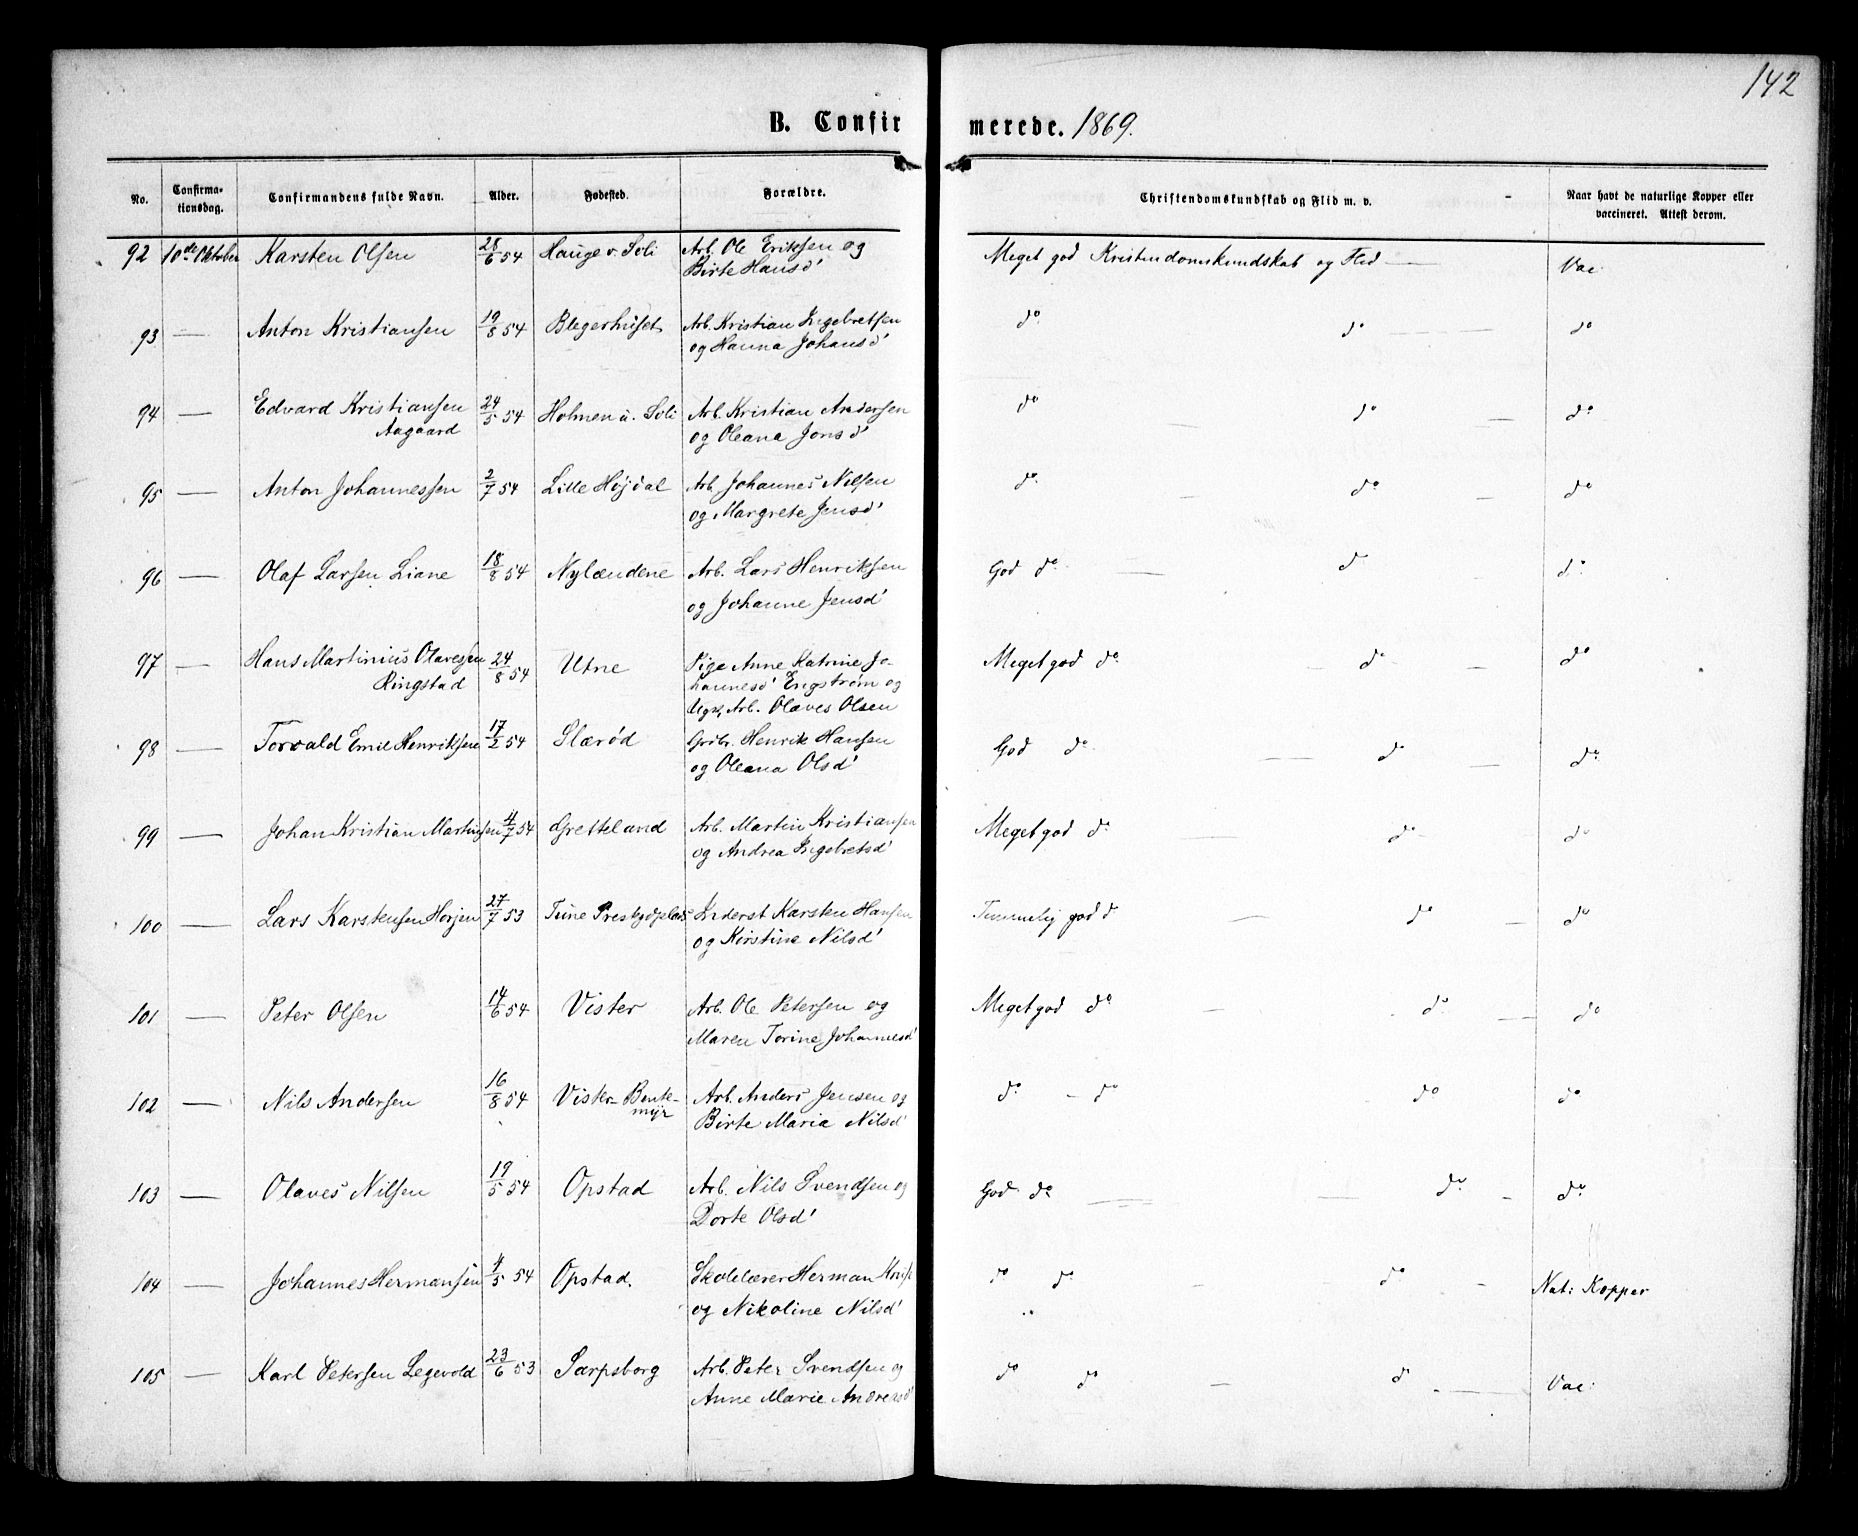 142
B. Confirmerede. 1869.
No. Confirma-tionsdag. Confirmandens fulde Navn. Alder. Fødested. Forældre. Christendomskundskab og Flid m. v. Naar havt de naturlige Kopper eller vaccineret. Attest derom.
92 10de Oktober Karsten Olsen 28/6 54 Hauge v. Soli Arb. Ole Eriksen og Meget god Kristendomskundskab og Flid — Vac:
Birte Hansd'
93 — Anton Kristiansen 19/8 54 Blegerhuset Arb. Kristian Ingebretsen do do — do
og Hanna Johansd'
94 — Edvard Kristiansen 24/5 54 Holmen u. Soli Arb. Kristian Andersen do do — do
Aagaard og Oleana Jonsd'
95 — Anton Johannessen 2/7 54 Lille Højdal Arb. Johannes Nilsen do — do — do
og Margrete Jensd'
96 — Olaf Larsen Liane 18/8 54 Nylændene Arb. Lars Henriksen God do — do — do
og Johanne Jensd'
97 — Hans Martinius Olavesen 24/8 54 Utne Pige Anne Katrine Jo- Meget god do — do — do
Ringstad hannesd' Engstrøm og
Ugk. Arb. Olaves Olsen
98 — Torvald Emil Henriksen 17/2 54 Slærød Grdbr. Henrik Hansen God do — do — do
og Oleana Olsd'
99 — Johan Kristian Martinsen 4/7 54 Gretteland Arb. Martin Kristiansen Meget god do — do — do
og Andrea Ingebretsd'
100 — Lars Karstensen Horjen 27/7 53 Tune Prestegdplads Inderst Karsten Hansen Temmelig god do — do — do
og Kirstine Nilsd'
101 — Peter Olsen 14/6 54 Vister Arb. Ole Petersen og Meget god do — do — do
Maren Torine Johannesd'
102 — Nils Andersen 16/8 54 Vister Benk- Arb. Anders Jensen og do — do do do
myr Birte Maria Nilsd'
103 — Olaves Nilsen 19/5 54 Opstad Arb. Nils Svendsen og God do — do — do
Dorte Olsd'
104 — Johannes Hermansen 4/5 54 Opstad. Skolelærer Herman do do — do — Nat: Kopper
og Nikoline Nilsd'
105 — Karl Petersen Legevold 23/6 53 Sarpsborg Arb. Peter Svendsen og do do — do — Vac:
Anne Marie Andreasd'